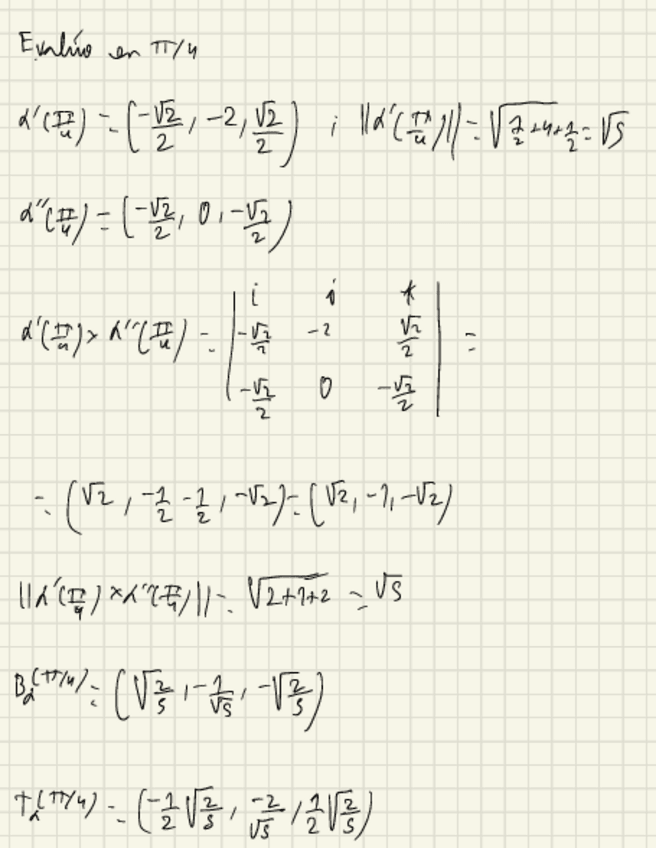 Evalúo en π/4
α'(π/4) = (-√2/2, -2, √2/2) ; ||α'(π/4)|| = √(1/2+4+1/2) = √5
α''(π/4) = (-√2/2, 0, -√2/2)
α'(π/4) × α''(π/4) = | i j k | =
| -√2/2 -2 √2/2 |
| -√2/2 0 -√2/2 |
= (√2, -1/2 -1/2, -√2) = (√2, -1, -√2)
||α'(π/4) × α''(π/4)|| = √(2+1+2) = √5
B_α(π/4) = (√(2/5), -1/√5, -√(2/5))
T_α(π/4) = (-1/2 √(2/5), -2/√5, 1/2 √(2/5))